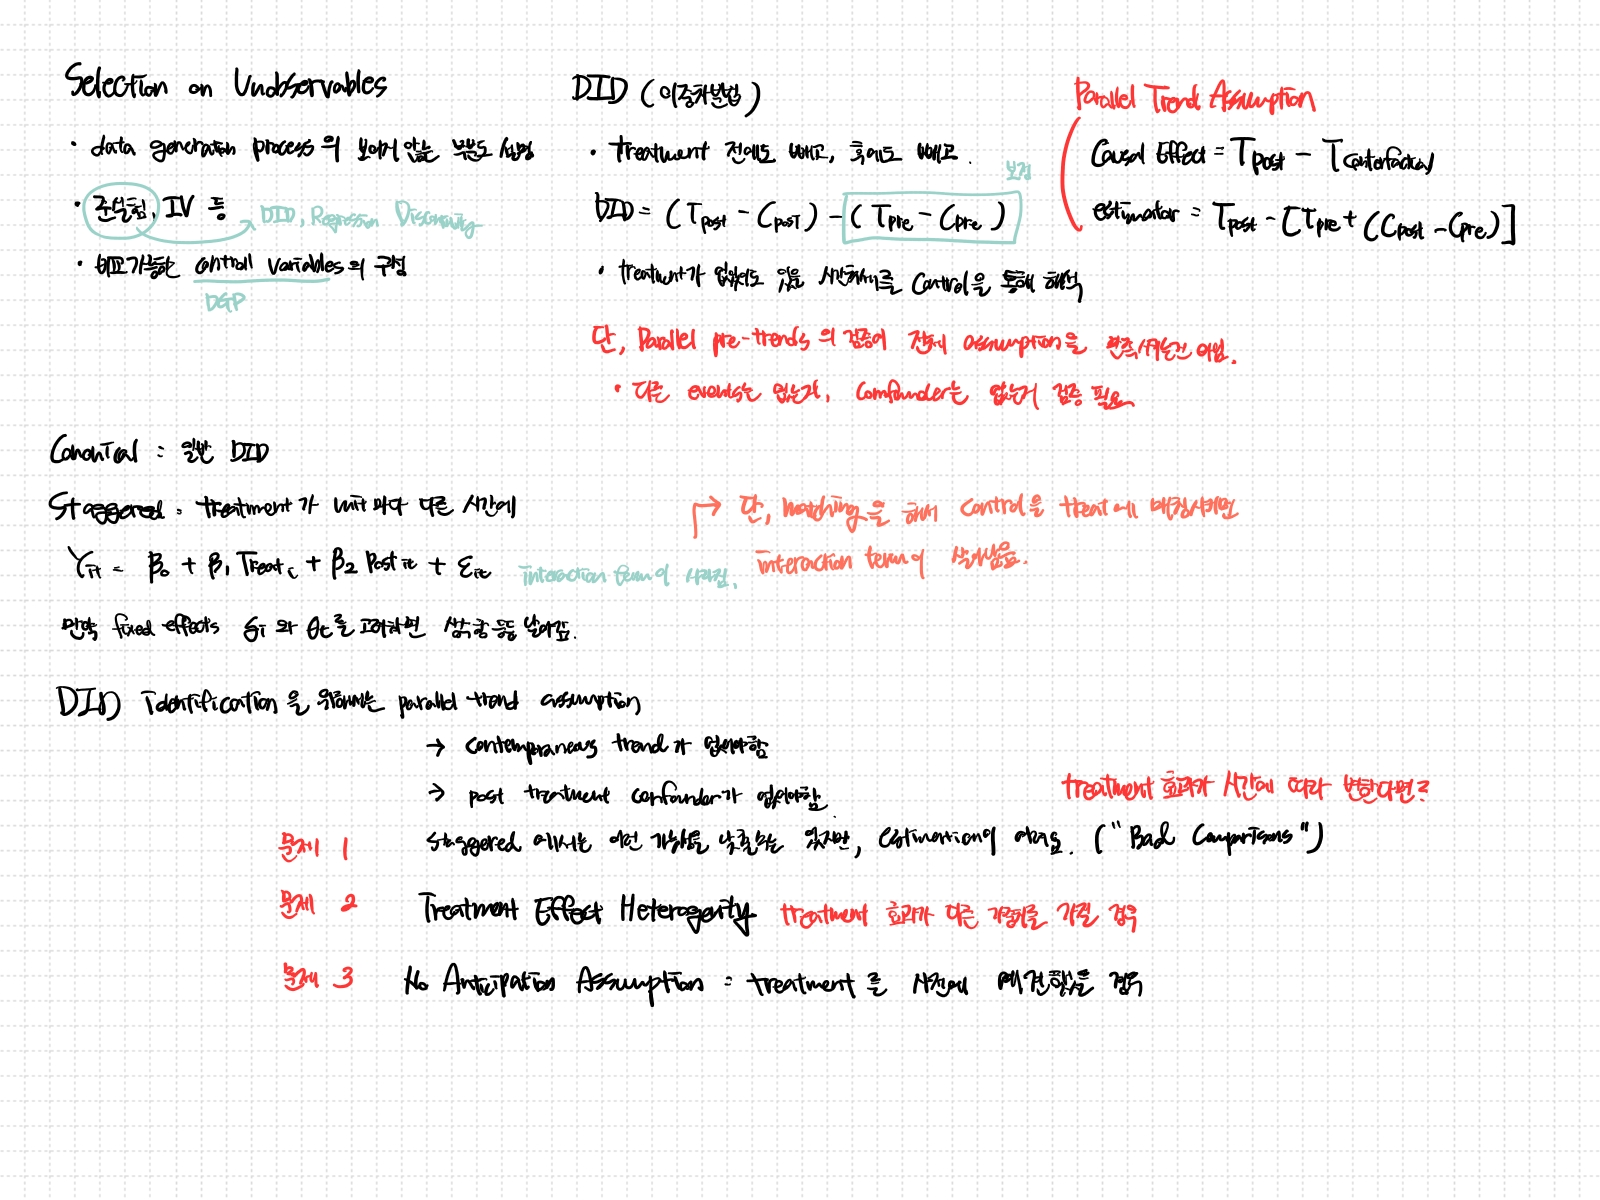 Selection on Unobservables
· data generation process의 보이지 않는 부분도 설명
· 준실험, IV 등
DID, Regression Discontinuity
· 비교가능한 control variables의 구성
DGP
DID (이중차분법)
· treatment 전에도 빼고, 후에도 빼고.
보정
DID = (Tpost - Cpost) - (Tpre - Cpre)
· treatment가 없었어도 있을 시간차이를 Control을 통해 해석
단, Parallel pre-trends의 검증이 전체 assumption을 만족시키는건 아님.
· 다른 events는 없는가, Confounder는 없는지 검증 필요
Parallel Trend Assumption
Causal Effect = Tpost - Tconterfactual
estimator = Tpost - [Tpre + (Cpost - Cpre)]
Canonical : 일반 DID
Staggered : treatment가 unit마다 다른 시간에
Yit = β0 + β1 Treati + β2 Postit + εit
interaction term이 사라짐.
→ 단, matching을 해서 Control을 treat에 매칭시키면
interaction term이 살아남음.
만약 fixed effects δi 와 θt를 고려하면 상수항 등등 날아감.
DID identification을 위해서는 parallel trend assumption
→ contemporaneous trend가 없어야함
→ post treatment confounder가 없어야함.
treatment 효과가 시간에 따라 변한다면?
문제 1 staggered 에서는 이런 가능성을 낮출수는 있지만, estimation이 어려움. ("Bad Comparisons")
문제 2 Treatment Effect Heterogenity treatment 효과가 다른 기울기를 가질 경우
문제 3 No Anticipation Assumption = treatment를 사전에 예견했을 경우